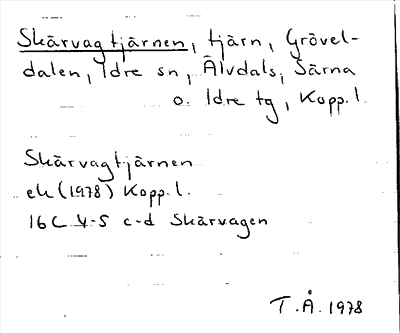 Skärvagtjärnen, tjärn, Grövel-
dalen, Idre sn, Älvdals, Särna
o. Idre tg, Kopp. l.
Skärvagtjärnen
ek (1978) Kopp. l.
16C 4-5 c-d Skärvagen
T.Å. 1978